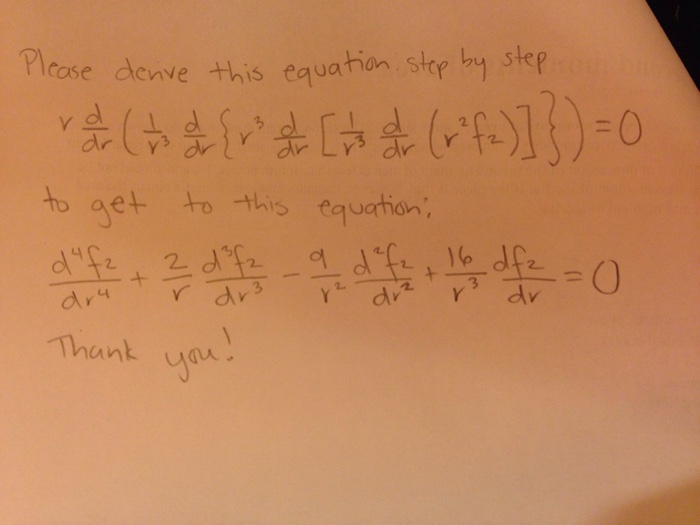 Please derive this equation step by step
r d/dr ( 1/r³ d/dr { r³ d/dr [ 1/r³ d/dr (r²f₂) ] } ) = 0
to get to this equation:
d⁴f₂/dr⁴ + 2/r d³f₂/dr³ - 9/r² d²f₂/dr² + 16/r³ df₂/dr = 0
Thank you!